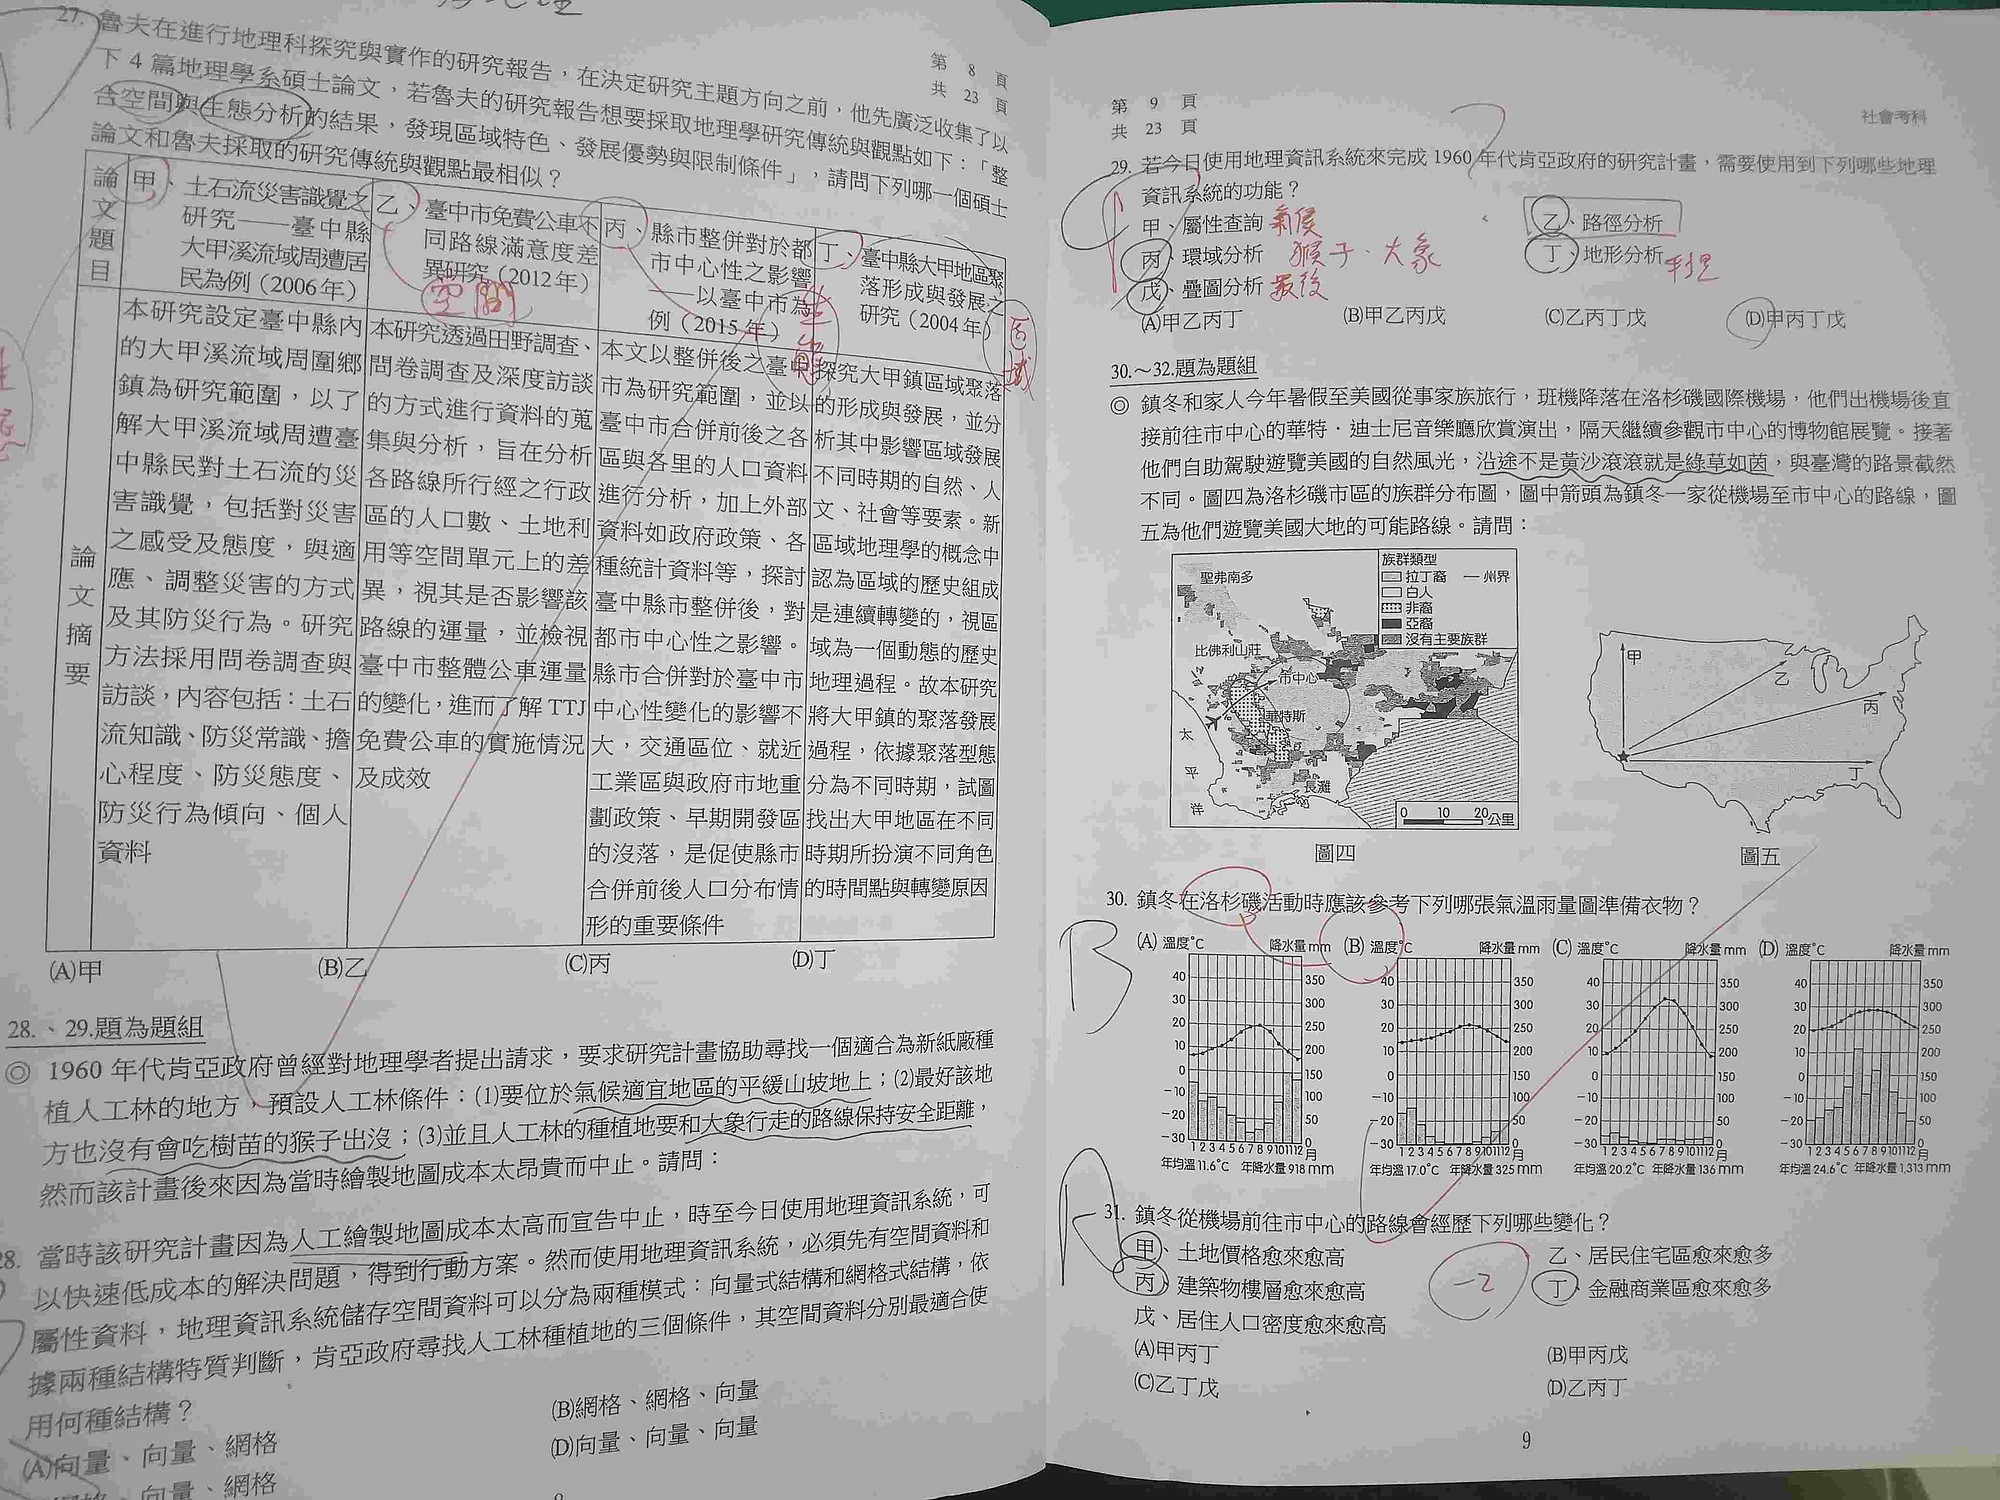 第 8 頁
共 23 頁
27. 魯夫在進行地理科探究與實作的研究報告，在決定研究主題方向之前，他先廣泛收集了以
下 4 篇地理學系碩士論文，若魯夫的研究報告想要採取地理學研究傳統與觀點如下：「整
合空間與生態分析的結果，發現區域特色、發展優勢與限制條件」，請問下列哪一個碩士
論文和魯夫採取的研究傳統與觀點最相似？
論文題目
甲、土石流災害識覺之
研究——臺中縣
大甲溪流域周遭居
民為例（2006年）
乙、臺中市免費公車不
同路線滿意度差
異研究（2012年）
空間
丙、縣市整併對於都
市中心性之影響
——以臺中市為
例（2015年）
丁、臺中縣大甲地區聚
落形成與發展之
研究（2004年）
區域
論文摘要
本研究設定臺中縣內
的大甲溪流域周圍鄉
鎮為研究範圍，以了
解大甲溪流域周遭臺
中縣民對土石流的災
害識覺，包括對災害
之感受及態度，與適
應、調整災害的方式
及其防災行為。研究
方法採用問卷調查與
訪談，內容包括：土石
流知識、防災常識、擔
心程度、防災態度、
防災行為傾向、個人
資料
本研究透過田野調查、
問卷調查及深度訪談
的方式進行資料的蒐
集與分析，旨在分析
各路線所行經之行政
區的人口數、土地利
用等空間單元上的差
異，視其是否影響該
路線的運量，並檢視
臺中市整體公車運量
的變化，進而了解 TTJ
免費公車的實施情況
及成效
本文以整併後之臺中
市為研究範圍，並以
臺中市合併前後之各
區與各里的人口資料
進行分析，加上外部
資料如政府政策、各
種統計資料等，探討
臺中縣市整併後，對
都市中心性之影響。
縣市合併對於臺中市
中心性變化的影響不
大，交通區位、就近
工業區與政府市地重
劃政策、早期開發區
的沒落，是促使縣市
合併前後人口分布情
形的重要條件
探究大甲鎮區域聚落
的形成與發展，並分
析其中影響區域發展
不同時期的自然、人
文、社會等要素。新
區域地理學的概念中
認為區域的歷史組成
是連續轉變的，視區
域為一個動態的歷史
地理過程。故本研究
將大甲鎮的聚落發展
過程，依據聚落型態
分為不同時期，試圖
找出大甲地區在不同
時期所扮演不同角色
的時間點與轉變原因
(A)甲 (B)乙 (C)丙 (D)丁
28.、29.題為題組
◎ 1960 年代肯亞政府曾經對地理學者提出請求，要求研究計畫協助尋找一個適合為新紙廠種
植人工林的地方，預設人工林條件：(1)要位於氣候適宜地區的平緩山坡地上；(2)最好該地
方也沒有會吃樹苗的猴子出沒；(3)並且人工林的種植地要和大象行走的路線保持安全距離，
然而該計畫後來因為當時繪製地圖成本太昂貴而中止。請問：
28. 當時該研究計畫因為人工繪製地圖成本太高而宣告中止，時至今日使用地理資訊系統，可
以快速低成本的解決問題，得到行動方案。然而使用地理資訊系統，必須先有空間資料和
屬性資料，地理資訊系統儲存空間資料可以分為兩種模式：向量式結構和網格式結構，依
據兩種結構特質判斷，肯亞政府尋找人工林種植地的三個條件，其空間資料分別最適合使
用何種結構？
(A)向量、向量、網格 (B)網格、網格、向量
向量、網格 (D)向量、向量、向量
第 9 頁
共 23 頁
社會考科
29. 若今日使用地理資訊系統來完成 1960 年代肯亞政府的研究計畫，需要使用到下列哪些地理
資訊系統的功能？
甲、屬性查詢 氣侯 乙、路徑分析
丙、環域分析 猴子、大象 丁、地形分析 平坦
戊、疊圖分析 最後
(A)甲乙丙丁 (B)甲乙丙戊 (C)乙丙丁戊 (D)甲丙丁戊
30.～32.題為題組
◎ 鎮冬和家人今年暑假至美國從事家族旅行，班機降落在洛杉磯國際機場，他們出機場後直
接前往市中心的華特．迪士尼音樂廳欣賞演出，隔天繼續參觀市中心的博物館展覽。接著
他們自助駕駛遊覽美國的自然風光，沿途不是黃沙滾滾就是綠草如茵，與臺灣的路景截然
不同。圖四為洛杉磯市區的族群分布圖，圖中箭頭為鎮冬一家從機場至市中心的路線，圖
五為他們遊覽美國大地的可能路線。請問：
族群類型
拉丁裔 — 州界
白人
非裔
亞裔
沒有主要族群
聖弗南多
比佛利山莊
市中心
華特斯
太平洋
長灘
0 10 20公里
圖四
甲
乙
丙
丁
圖五
30. 鎮冬在洛杉磯活動時應該參考下列哪張氣溫雨量圖準備衣物？
B
(A) 溫度℃ 降水量 mm (B) 溫度℃ 降水量 mm (C) 溫度℃ 降水量 mm (D) 溫度℃ 降水量 mm
40 350 40 350 40 350 40 350
30 300 30 300 30 300 30 300
20 250 20 250 20 250 20 250
10 200 10 200 10 200 10 200
0 150 0 150 0 150 0 150
－10 100 －10 100 －10 100 －10 100
－20 50 －20 50 －20 50 －20 50
－30 0 －30 0 －30 0 －30 0
1 2 3 4 5 6 7 8 9 10 11 12 月 1 2 3 4 5 6 7 8 9 10 11 12 月 1 2 3 4 5 6 7 8 9 10 11 12 月 1 2 3 4 5 6 7 8 9 10 11 12 月
年均溫 11.6℃ 年降水量 918 mm 年均溫 17.0℃ 年降水量 325 mm 年均溫 20.2℃ 年降水量 136 mm 年均溫 24.6℃ 年降水量 1,313 mm
A
31. 鎮冬從機場前往市中心的路線會經歷下列哪些變化？
甲、土地價格愈來愈高 乙、居民住宅區愈來愈多
丙、建築物樓層愈來愈高 －2 丁、金融商業區愈來愈多
戊、居住人口密度愈來愈高
(A)甲丙丁 (B)甲丙戊
(C)乙丁戊 (D)乙丙丁
9